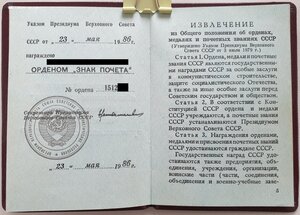 Указом Президиума Верховного Совета
СССР от «23» мая 1986 г.
награждено
ОРДЕНОМ "ЗНАК ПОЧЕТА"
№ ордена 1512
Секретарь Президиума
Верховного Совета СССР
«23» мая 1986 г.
ИЗВЛЕЧЕНИЕ
из Общего положения об орденах,
медалях и почетных званиях СССР
(Утверждено Указом Президиума Верховного
Совета СССР от 3 июля 1979 г.)
Статья 1. Ордена, медали и почетные
звания СССР являются государственны-
ми наградами СССР за особые заслуги
в коммунистическом строительстве,
защите социалистического Отечества,
а также за иные особые заслуги
перед Советским государством и обществом.
Статья 2. В соответствии с Кон-
ституцией СССР ордена и медали
СССР учреждаются, а почетные звания
СССР устанавливаются Президиумом
Верховного Совета СССР.
Статья 3. Награждения орденами,
медалями и присвоение почетных званий
СССР
Государственных наград СССР
удостаиваются также предприятия, объ-
единения, учреждения, организации,
воинские части,
соединения, объединения и военно-учебные заве-